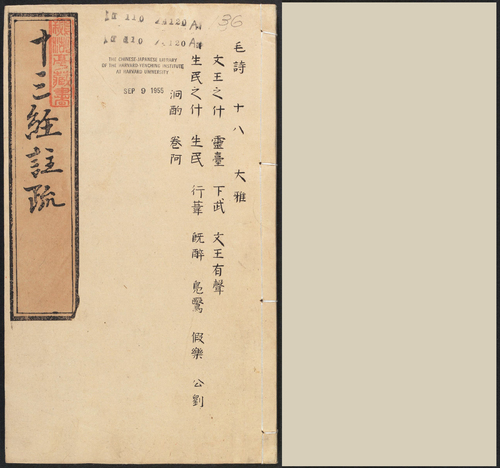 毛詩 十八 大雅
文王之什 靈臺 下武 文王有聲
生民之什 生民 行葦 既醉 鳧鷖 假樂 公劉
泂酌 卷阿
十三經註疏
36
THE CHINESE-JAPANESE LIBRARY
OF THE HARVARD-YENCHING INSTITUTE
AT HARVARD UNIVERSITY
SEP 9 1955